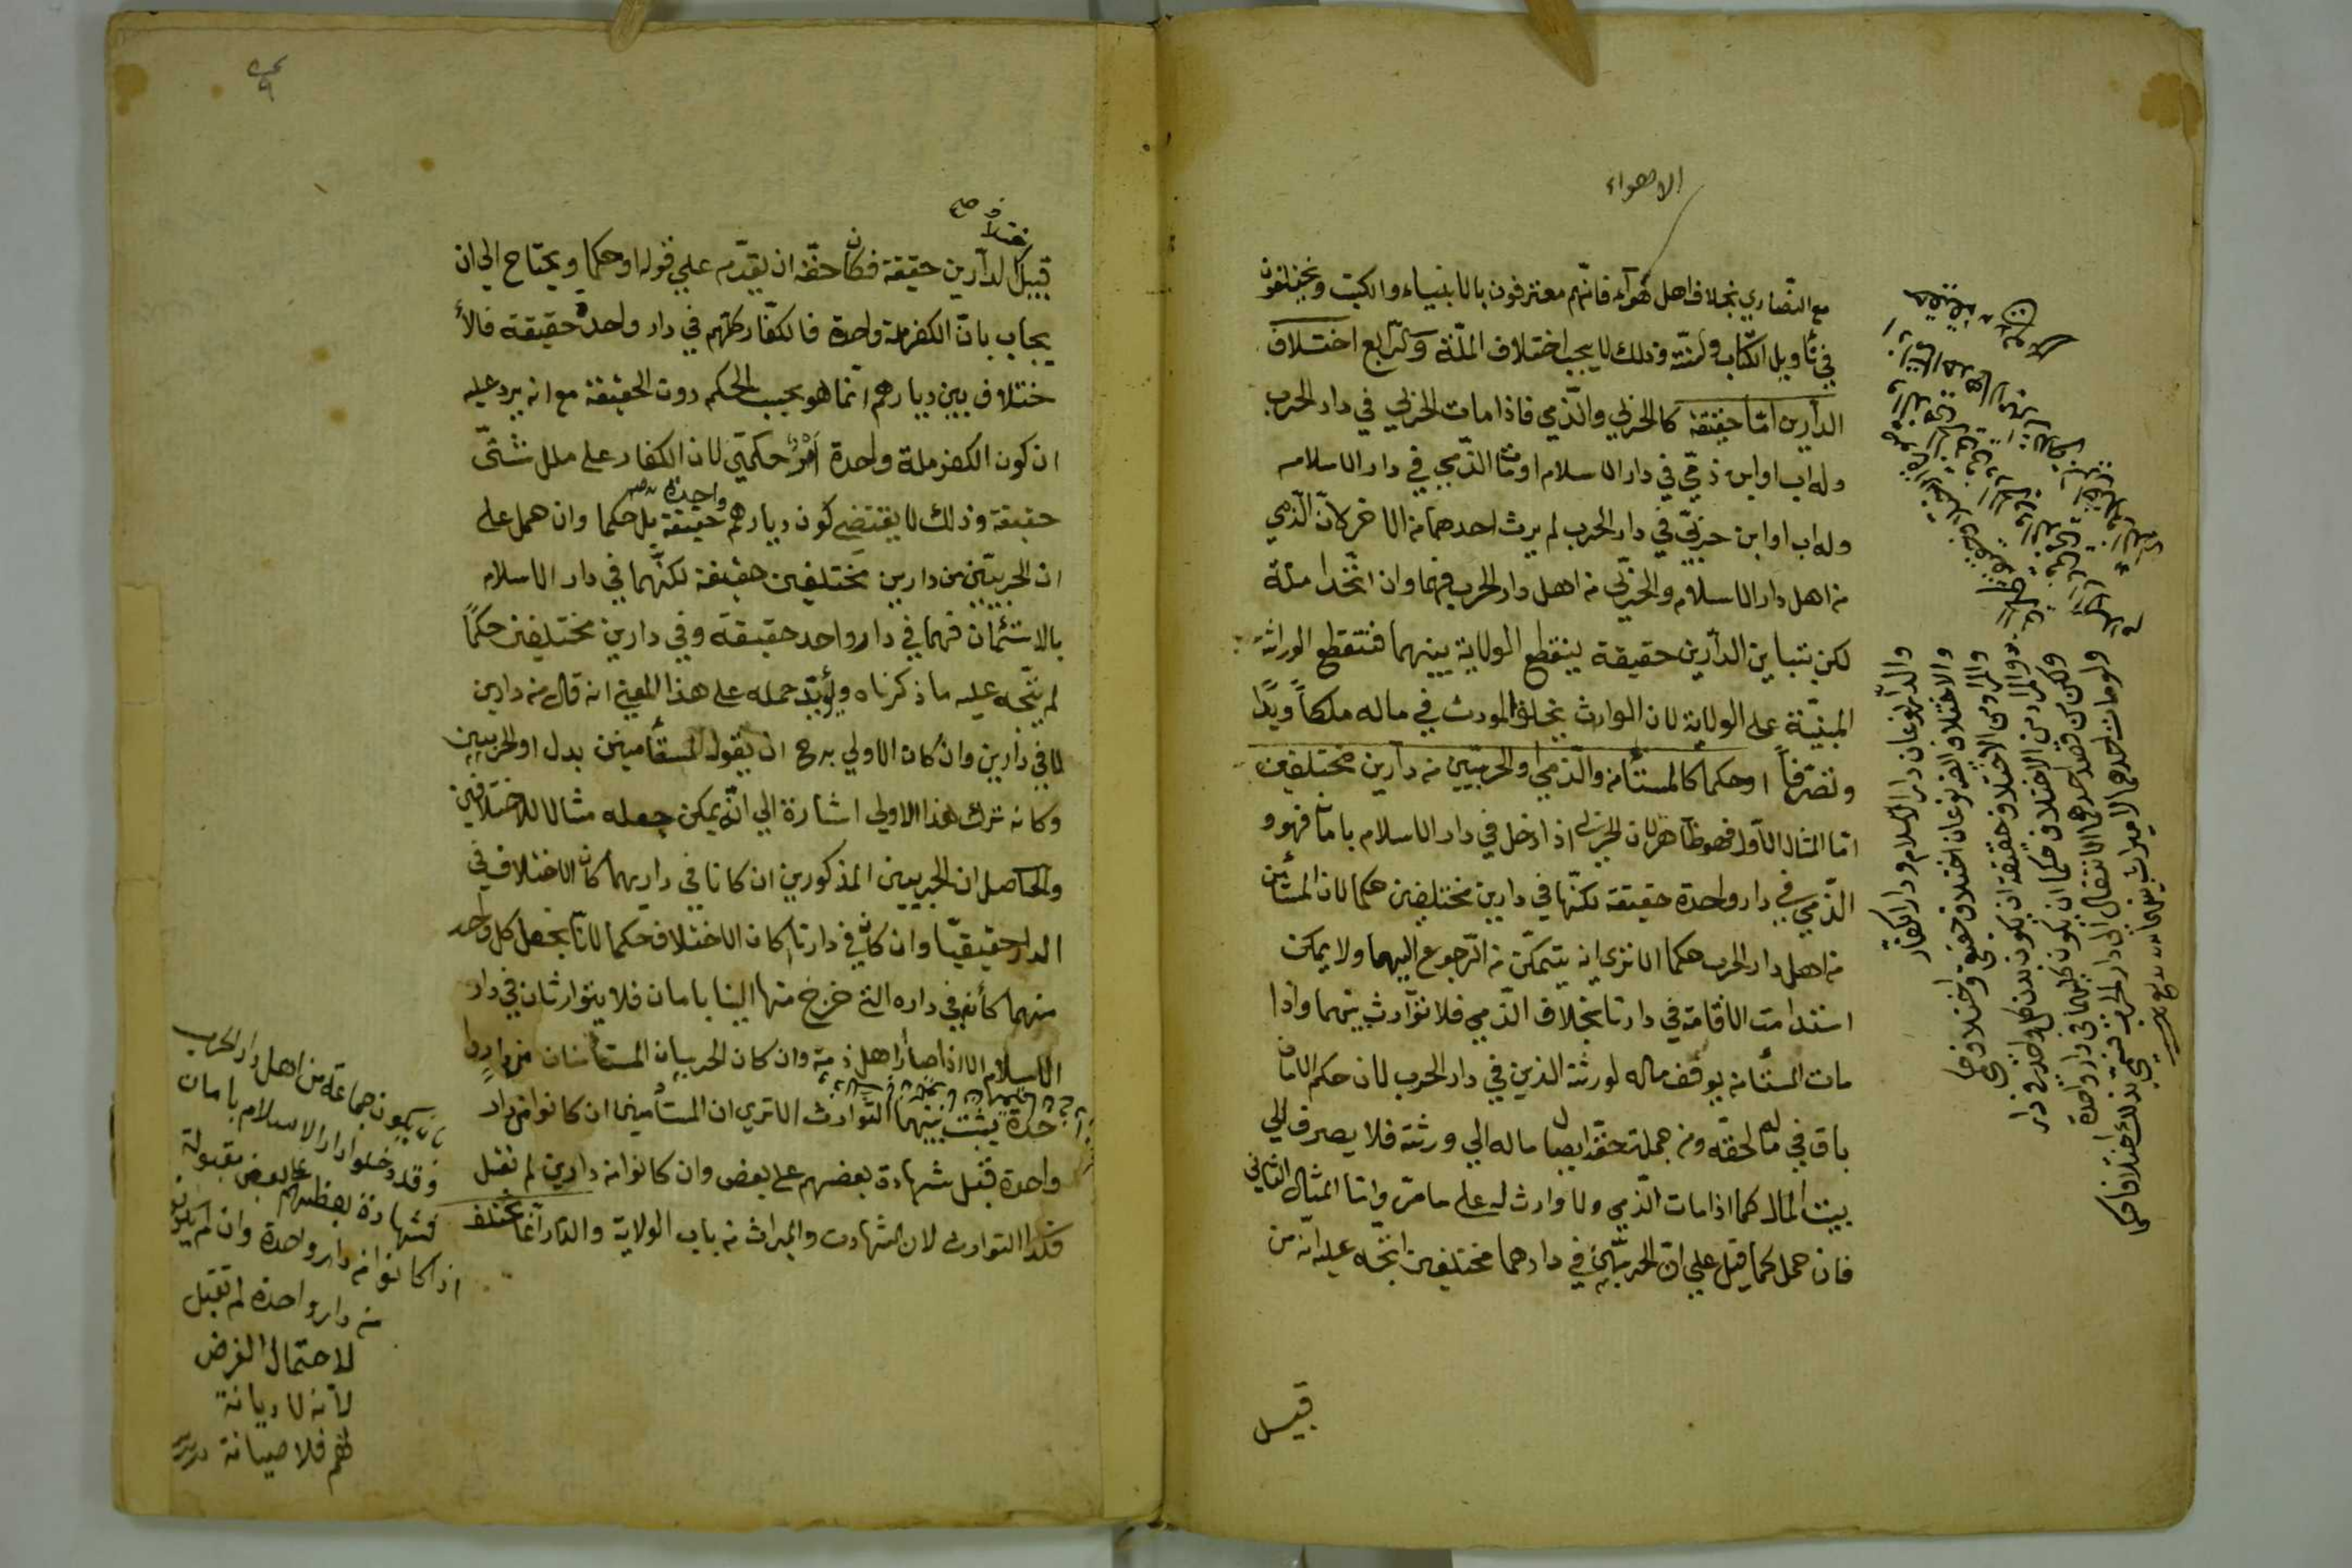 الاهواء
مع النصاري بخلاف اهل هوآء فانّهم معترفون بالانبياء والكتب ويختلفون
في تأويل الكتاب والسنة وذلك لا يوجب اختلاف الملّة والرّابع اختلاف
الدارين امّا حقيقة كالحربي والذّمي فاذا مات الحربي في دار الحرب
وله اب او ابن ذمّي في دار الاسلام او مات الذّمي في دار الاسلام
وله اب او ابن حربيّ في دار الحرب لم يرث احدهما من الاخر لانّ الذّمي
من اهل دار الاسلام والحربي من اهل دار الحرب فهما وان اتّحدا ملة
لكن بتباين الدآرين حقيقة ينقطع الولاية بينهما فتنقطع الوراثة
المبنيّة على الولاية لان الوارث يخلف المورث في ماله ملكاً ويدًا
وتصرّفاً او حكما كالمستأمن والذّمي او الحربيّين من دارين مختلفين
امّا المثال الاوّل فهو ظاهر لان الحربي اذا دخل في دار الاسلام بامان فهو و
الذّمي في دار واحدة حقيقة لكنّها في دارين مختلفين حكما لان المستأمن
من اهل دار الحرب حكما الا تري انه يتمكّن من الرّجوع اليهما ولا يمكن
استدامت الاقامة في دارنا بخلاف الذّمي فلا توارث بينهما واذا
مات المستأمن يوقف ماله لورثته الذين في دار الحرب لان حكم الامان
باق في ماله لحقّه ومن جملة حقّه ايصال ماله الي ورثته فلا يصرف الي
بيت المال كما اذا مات الذّمي ولا وارث له على ما مرّ وامّا المثال الثاني
فان حمل كما قيل علي انّ الحربيّين في دارهما مختلفين اتّجه عليه انّه من
قبيل
والدار نوعان دار الاسلام ودار الكفار
والاختلاف ايضا نوعان اختلاف حقيقي واختلاف حكمي
والمراد من الاختلاف حقيقة ان يكون بدن كل واحد في دار
والمراد من الاختلاف حكما ان يكون كلهما في دار واحدة
ولكن كان قصد احدهما الانتقال الى دار الحرب فسمي بذلك اختلافا حكما
ولو مات احدهما لا ميراث بينهما
اختلاف صح
قبيل الدآرين حقيقة فكان حقّه ان يقدّم علي قوله او حكما ويحتاج الي ان
يجاب بانّ الكفر ملة واحدة فالكفّار كلّهم في دار واحدة حقيقة فالأ
ختلاف بين ديارهم انّما هو بحسب الحكم دون الحقيقة مع انه يرد عليه
ان كون الكفر ملة واحدة امرٌ حكميّ لان الكفار على ملل شتّى
حقيقة وذلك لا يقتضي كون ديارهم واحدة صح حقيقة بل حكما وان حمل على
ان الحربيّين من دارين مختلفين حقيقة لكنّهما في دار الاسلام
بالاستئمان فهما في دار واحد حقيقة وفي دارين مختلفين حكمًا
لم يتّجه عليه ما ذكرناه ويؤيّد حمله على هذا المعني انه قال من دارين
لا في دارين وان كان الاولي ان يقول المستأمنين بدل او الحربيين
وكانه ترك هذا الاولي اشارة الي انّه يمكن جعله مثالا للاختلافين
والحاصل ان الحربيين المذكورين ان كانا في داريهما كان الاختلاف في
الدار حقيقيّا وان كانا في دارنا كان الاختلاف حكما لانّا نجعل كل واحد
منهما كأنه في داره التي خرج منها الينا بامان فلا يتوارثان في دار
الاسلام الا اذا صارا اهل ذمة وان كان الحربيان المستأمنان من دار وا
حدة يثبت بينهما التوارث الا تري ان المستأمنين ان كانوا من دار
واحدة تقبل شهادة بعضهم على بعض وان كانوا من دارين لم تقبل
فكذا التوارث لان الشهادت والميراث من باب الولاية والدار انّما تختلف
بان يكون جماعة من اهل دار الحرب
وقد دخلوا دار الاسلام بامان
فشهادة بعضهم على بعض مقبولة
اذا كانوا من دار واحدة وان لم يكونوا
من دار واحدة لم تقبل
لاحتمال الغرض
لأنه لا ديانة
لهم فلا صيانة